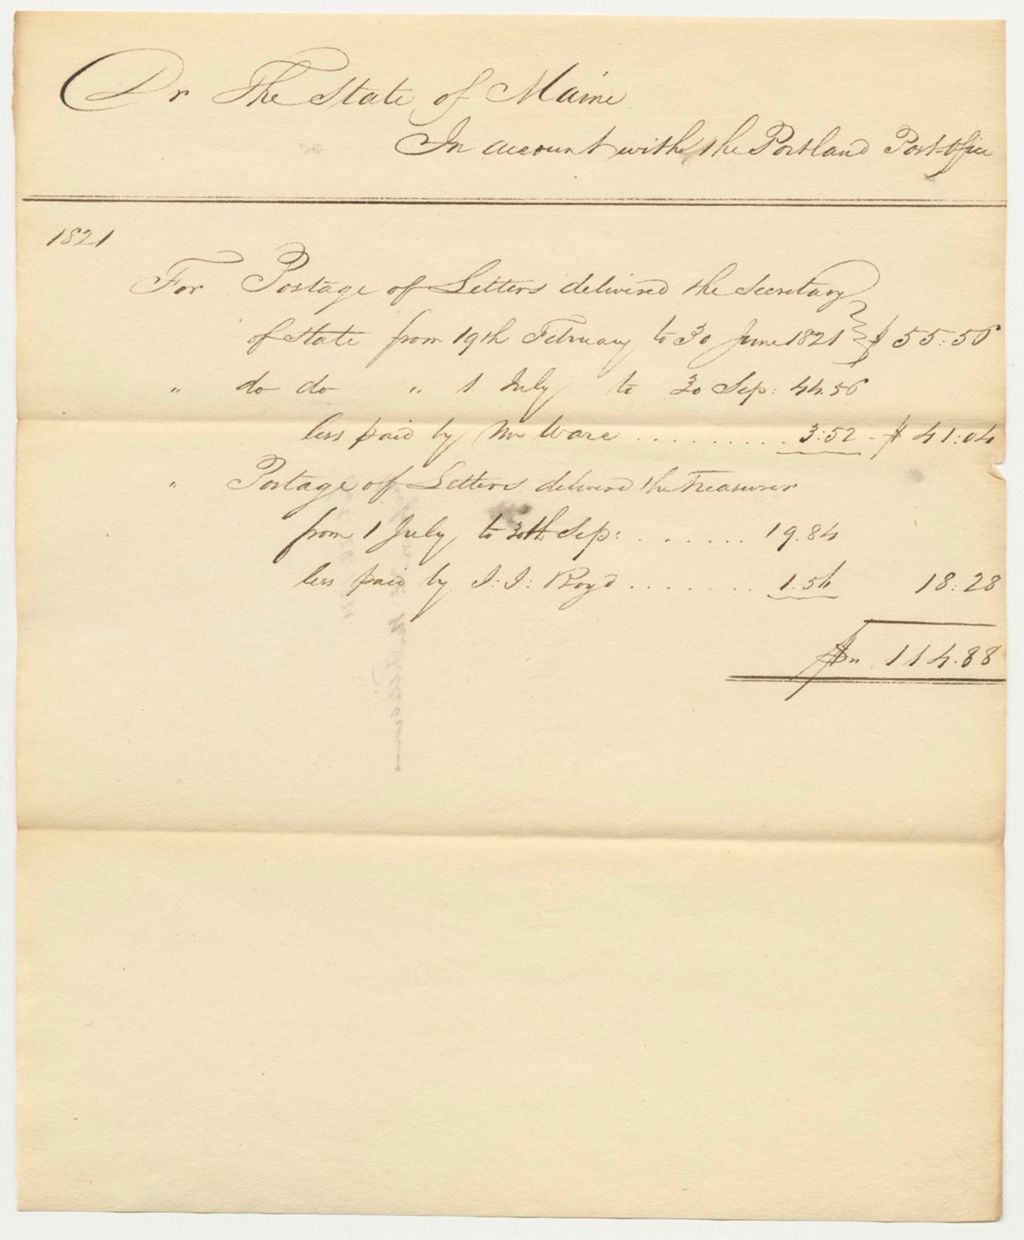 Dr The State of Maine
In account with the Portland Post-Office
1821
For Postage of Letters delivered the Secretary
of State from 19th February to 30 June 1821 $ 55:56
" do do " 1 July to 30 Sep: 44.56
less paid by Mr Ware .......... 3:52 - $ 41:04
" Postage of Letters deliverd the Treasurer
from 1 July to 30th Sep: ....... 19.84
less paid by J: J: Boyd ....... 1.56 18:28
$ 114.88